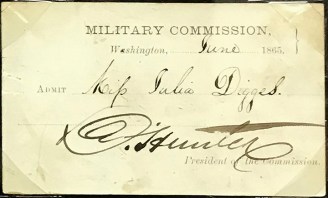 MILITARY COMMISSION,
Washington, June 1865,
ADMIT Miss Julia Digges.
D. Hunter
President of the Commission.